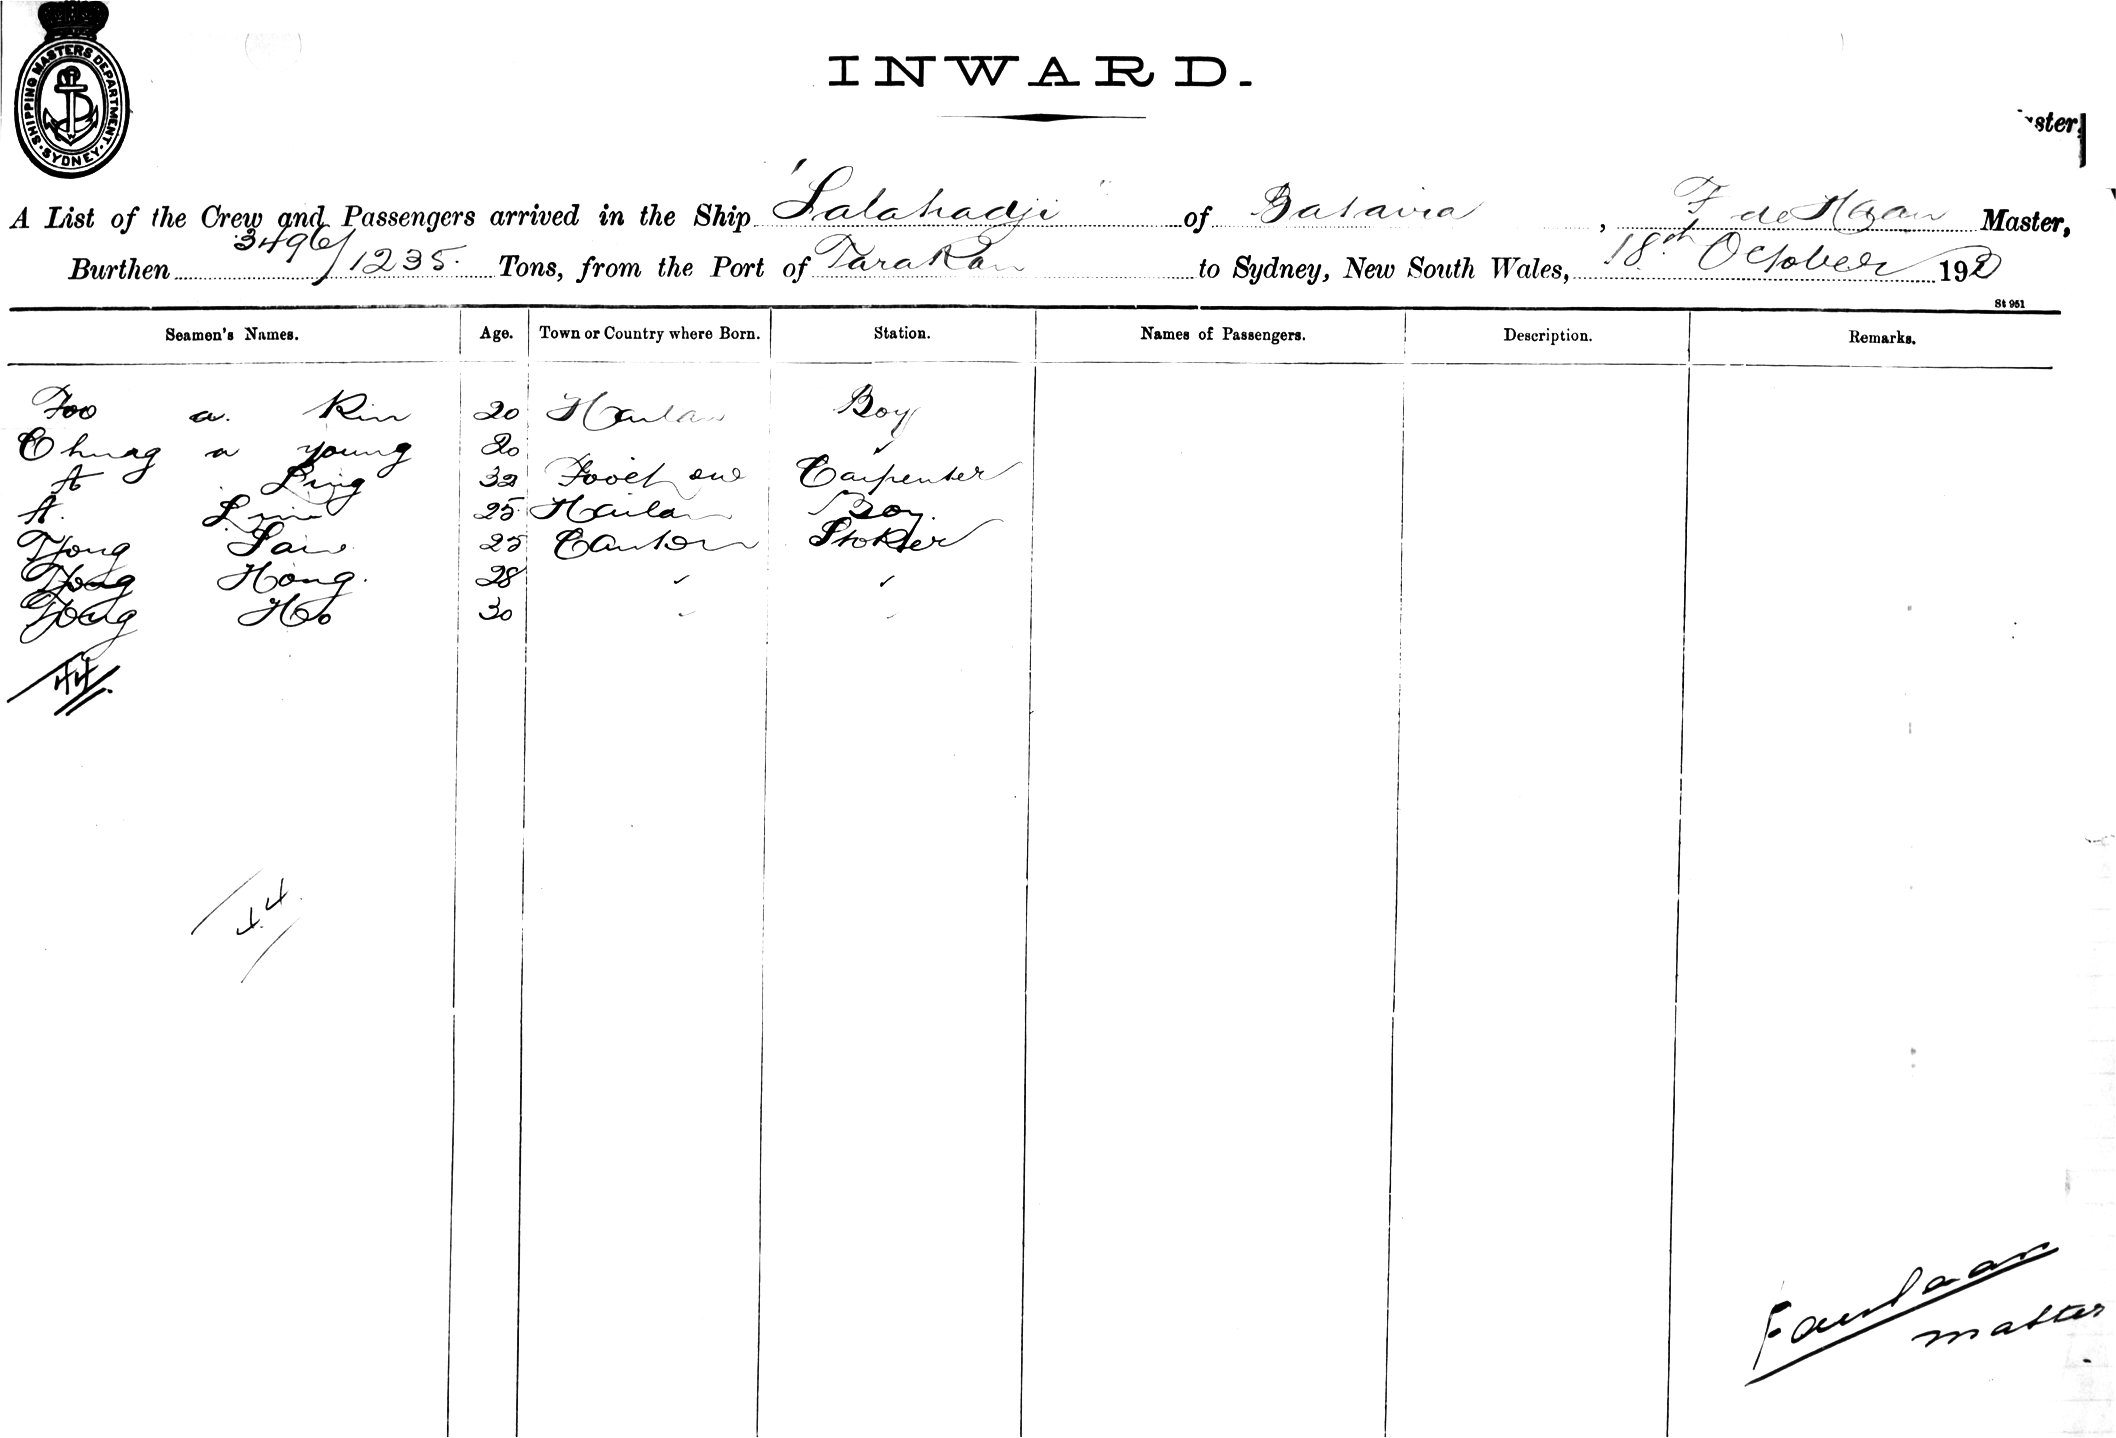 SHIPPING MASTERS DEPARTMENT · SYDNEY ·
INWARD.
ster,
A List of the Crew and Passengers arrived in the Ship "Salahadji" of Batavia, F de Haan Master,
Burthen 3496/1235. Tons, from the Port of Tarakan to Sydney, New South Wales, 18th October 192
St 951
Seamen's Names. Age. Town or Country where Born. Station. Names of Passengers. Description. Remarks.
Foo a. Kin 20 Hailan Boy
Chung a young 20 "
A Ling 32 Carpenter
A. Lim 25 Hailan Boy.
Tjong Sam 25 Canton Stokker
Tjong Hong. 28 " "
Tjong Ho 30 " "
44.
44
master